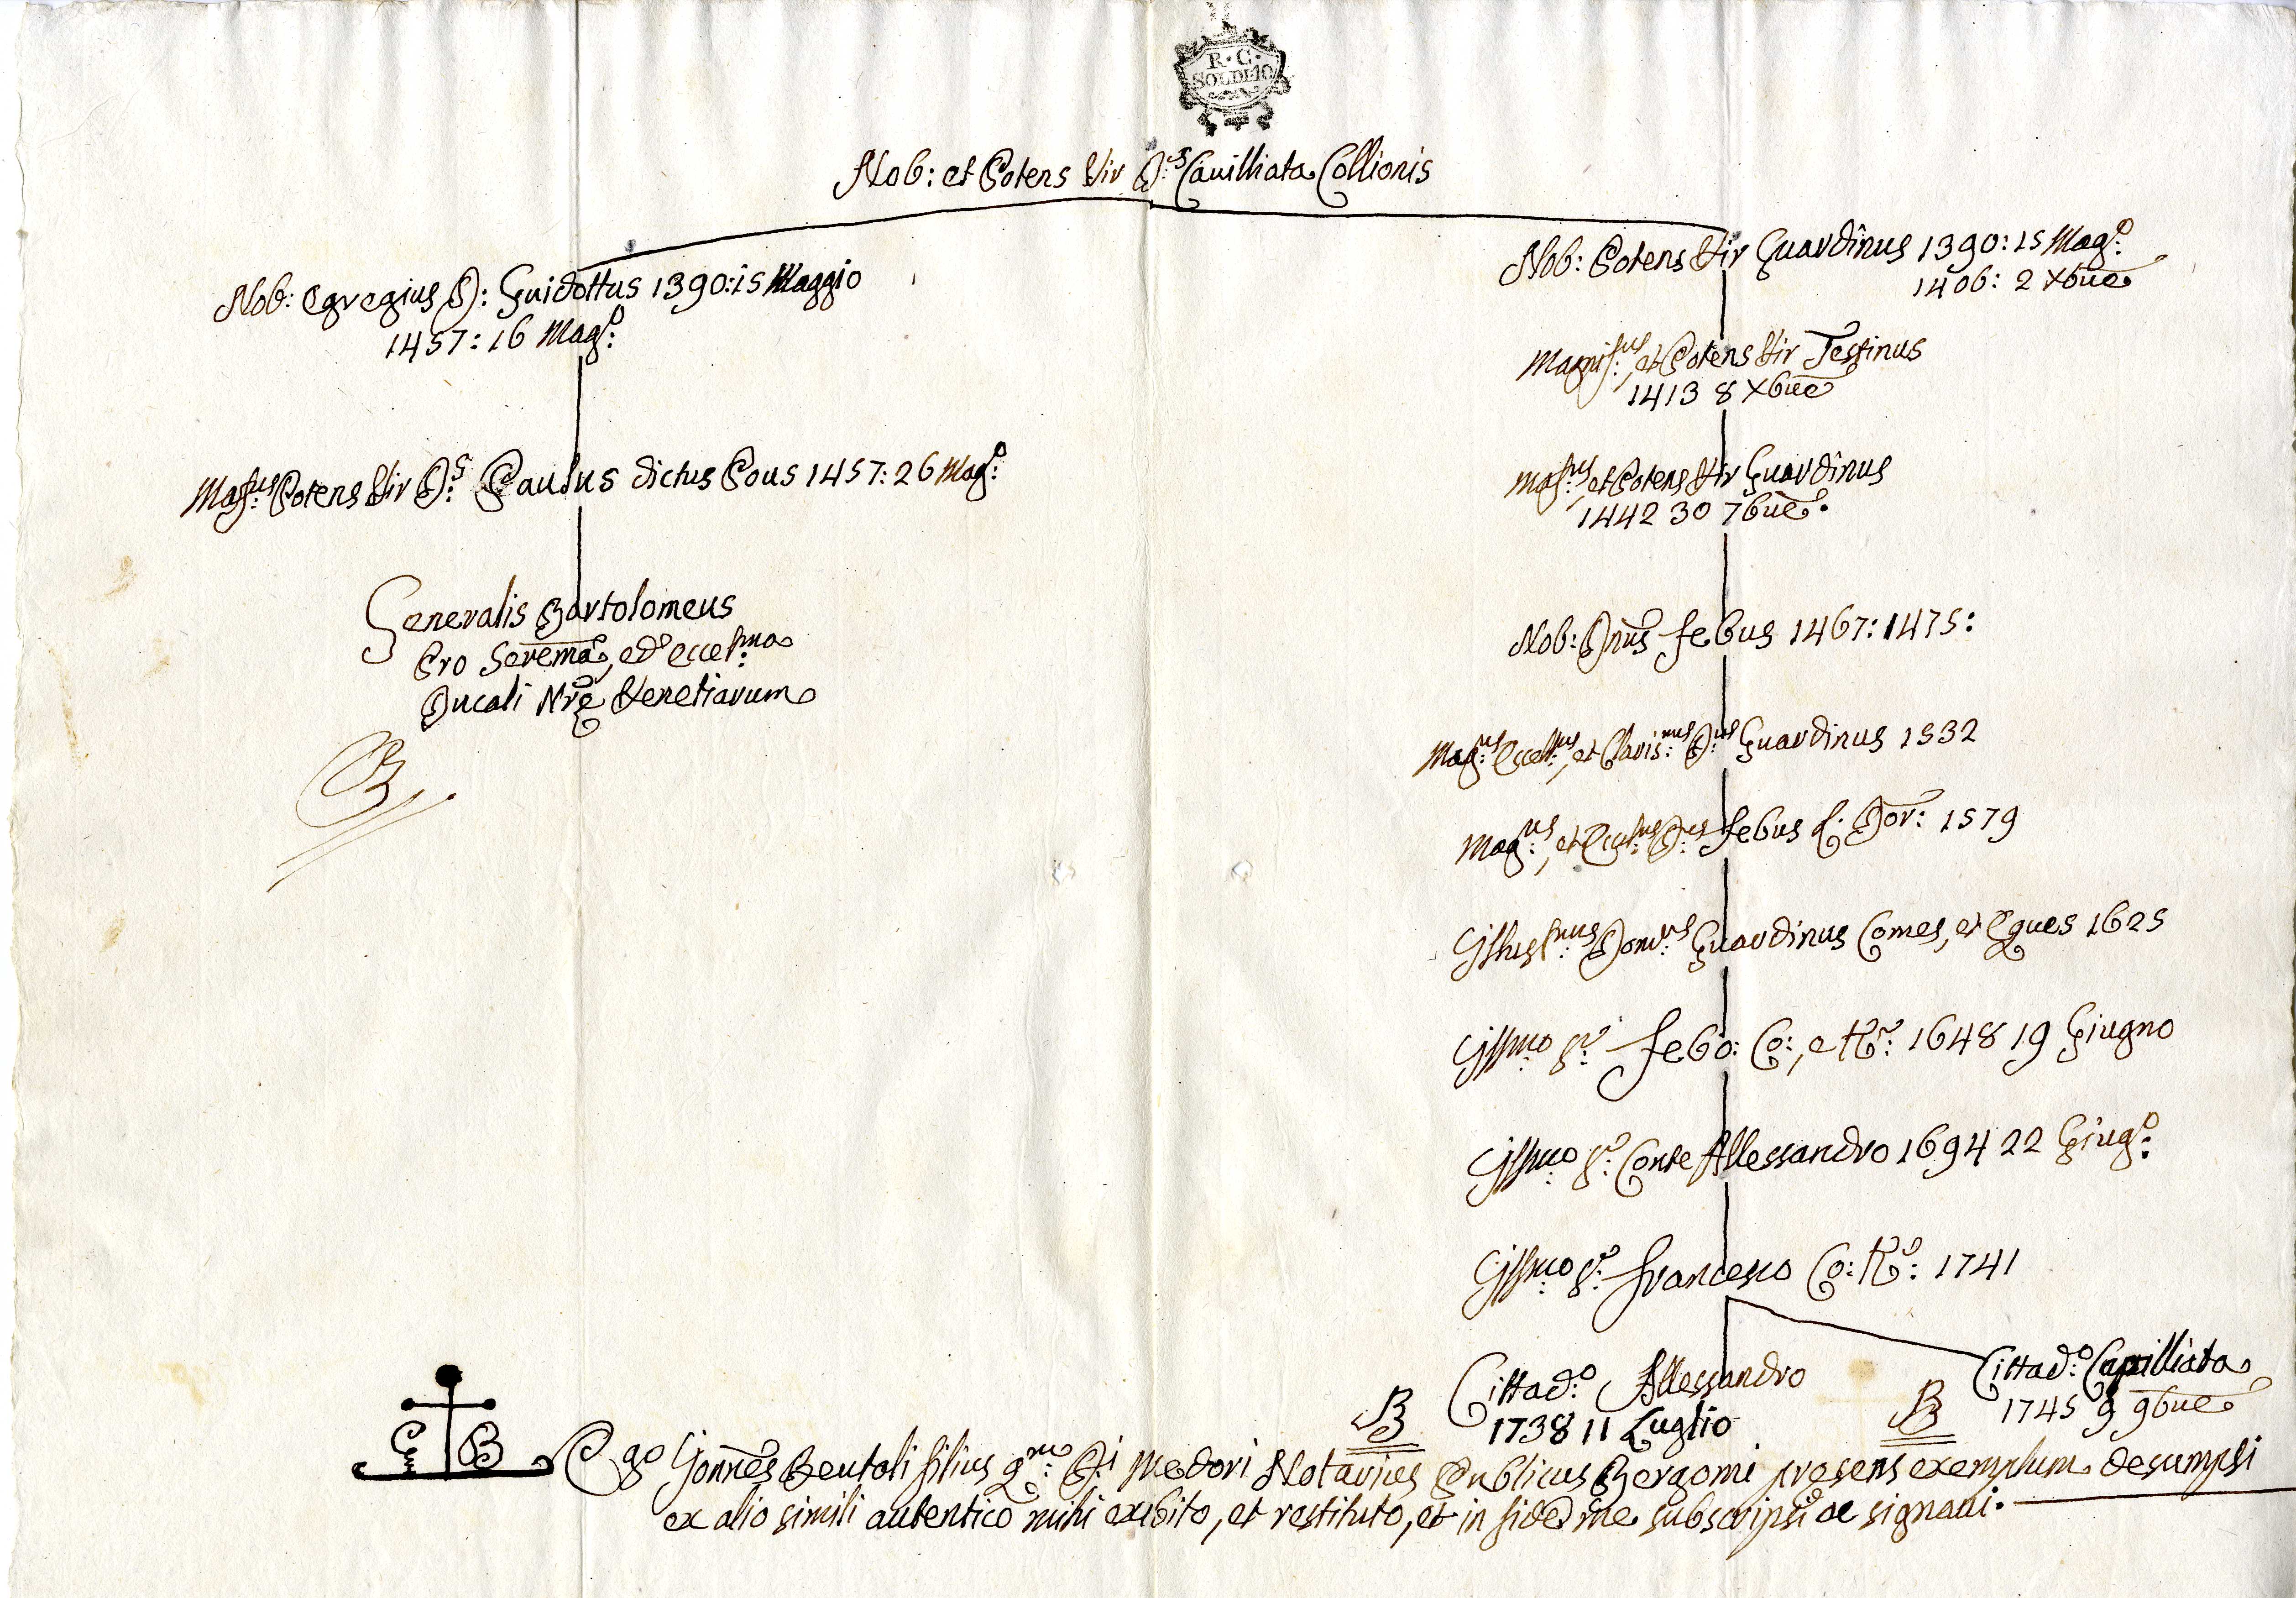 R. C.
SOLDI 10
Nob: et Potens Vir D.s Cavilliata Collionis
Nob: Egregius D: Guidottus 1390:15 Maggio
1457:16 Mag.o
Mag.us Potens Vir D.s Paulus dictus Pous 1457:26 Mag.o
Generalis Bartolomeus
Pro Serema, ed eccel.ma
Ducali Nrę Venetiarum
Nob: Potens Vir Guardinus 1390:15 Mag.o
1406: 2 Xbue
Magnif.us, et Potens Vir Testinus
1413 8 Xbue
Mag.us, et Potens Vir Guardinus
1442 30 7bue.
Nob: Dnus Febus 1467:1475:
Mag.us Eccell.us, et Claris.mus D.us Guardinus 1532
Mag.us, et Eccel.us D.us Febus Dor: 1579
Illus.mus Dom.us Guardinus Comes, et Eques 1625
Illmo S.r Febo: Co:, e Kr: 1648 19 Giugno
Illmo S.r Conte Allessandro 1694 22 Giug.o
Illmo S.r Francesco Co: Kr: 1741
Cittad.o Allessandro
1738 11 Luglio
Cittad.o Capilliata
1745 9 9bue
G B
Ego Joannes Beutali filius q.m D.i Medori Notarius Publicus Bergomi presens exemplum desumpsi
ex alio simili autentico mihi exibito, et restituto, et in fide me subscripsi ac signavi.